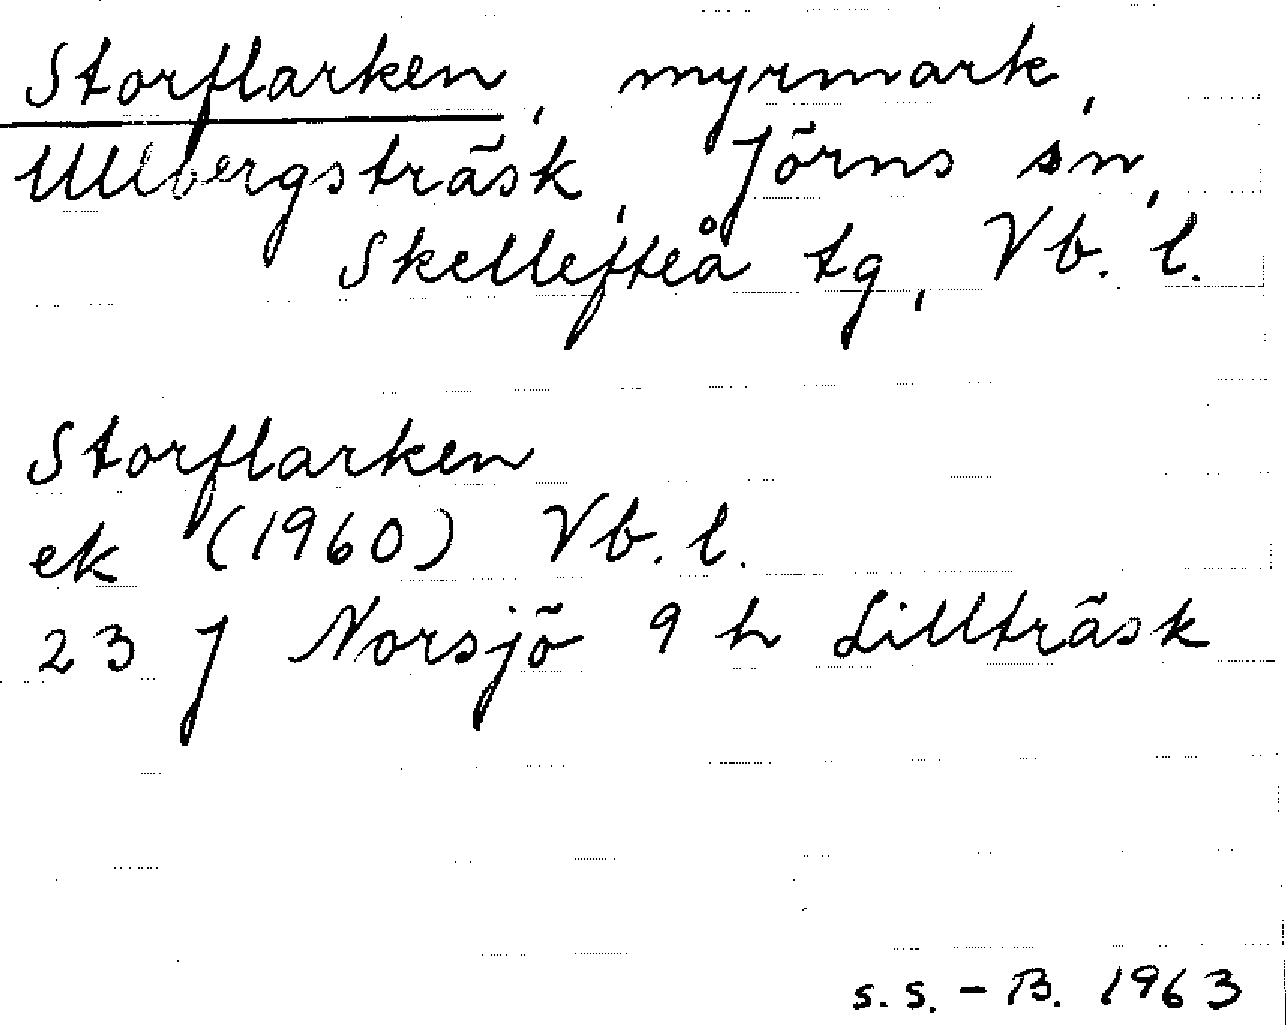 Storflarken, myrmark,
Ullbergsträsk, Jörns sn,
Skellefteå tg, Vb. l.
Storflarken
ek (1960) Vb. l.
23 J Norsjö 9 h Lillträsk
s.s. - B. 1963